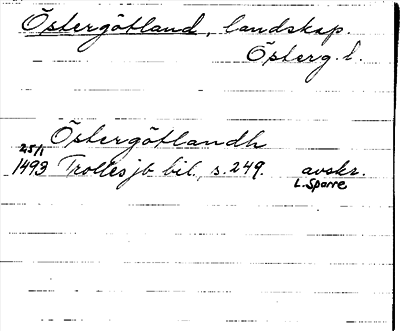 Östergötland, landskap.
Österg. l.
Östergötlandh
25/1
1493 Trolles jb bil., s. 249. avskr.
L. Sparre